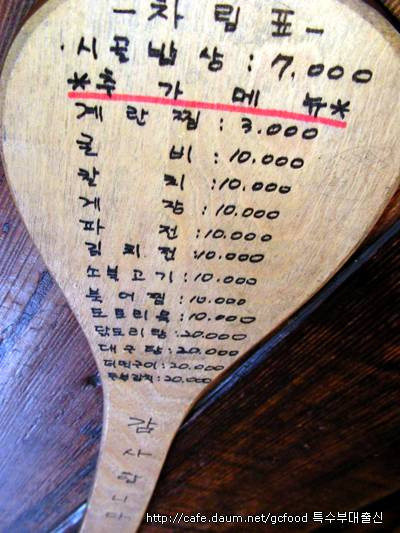 -차림표-
·시골밥상:7,000
*추가메뉴*
계란찜:3.000
굴비:10.000
갈치:10.000
게장:10.000
파전:10.000
김치전:10.000
소불고기:10.000
북어찜:10.000
도토리묵:10.000
닭도리탕:20.000
대구탕:20.000
더덕구이:20.000
20.000
감사합니다
http://cafe.daum.net/gcfood 특수부대출신